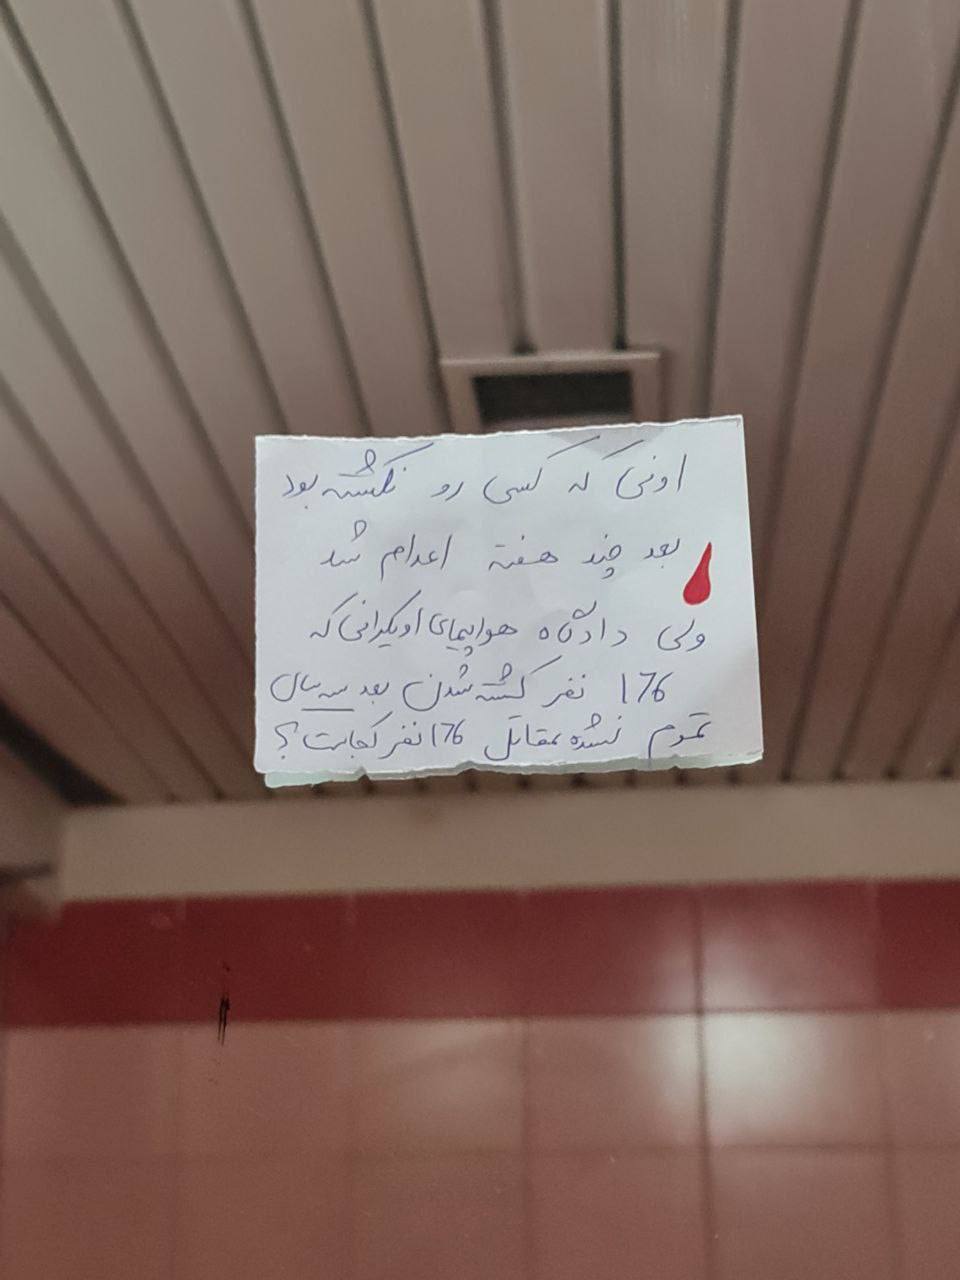 اونی که کسی رو نکشته بود
بعد چند هفته اعدام شد
ولی دادگاه هواپیمای اوکراینی که
176 نفر کشته شدن بعد سه سال
تموم نشده قاتل 176 نفر کجاست؟